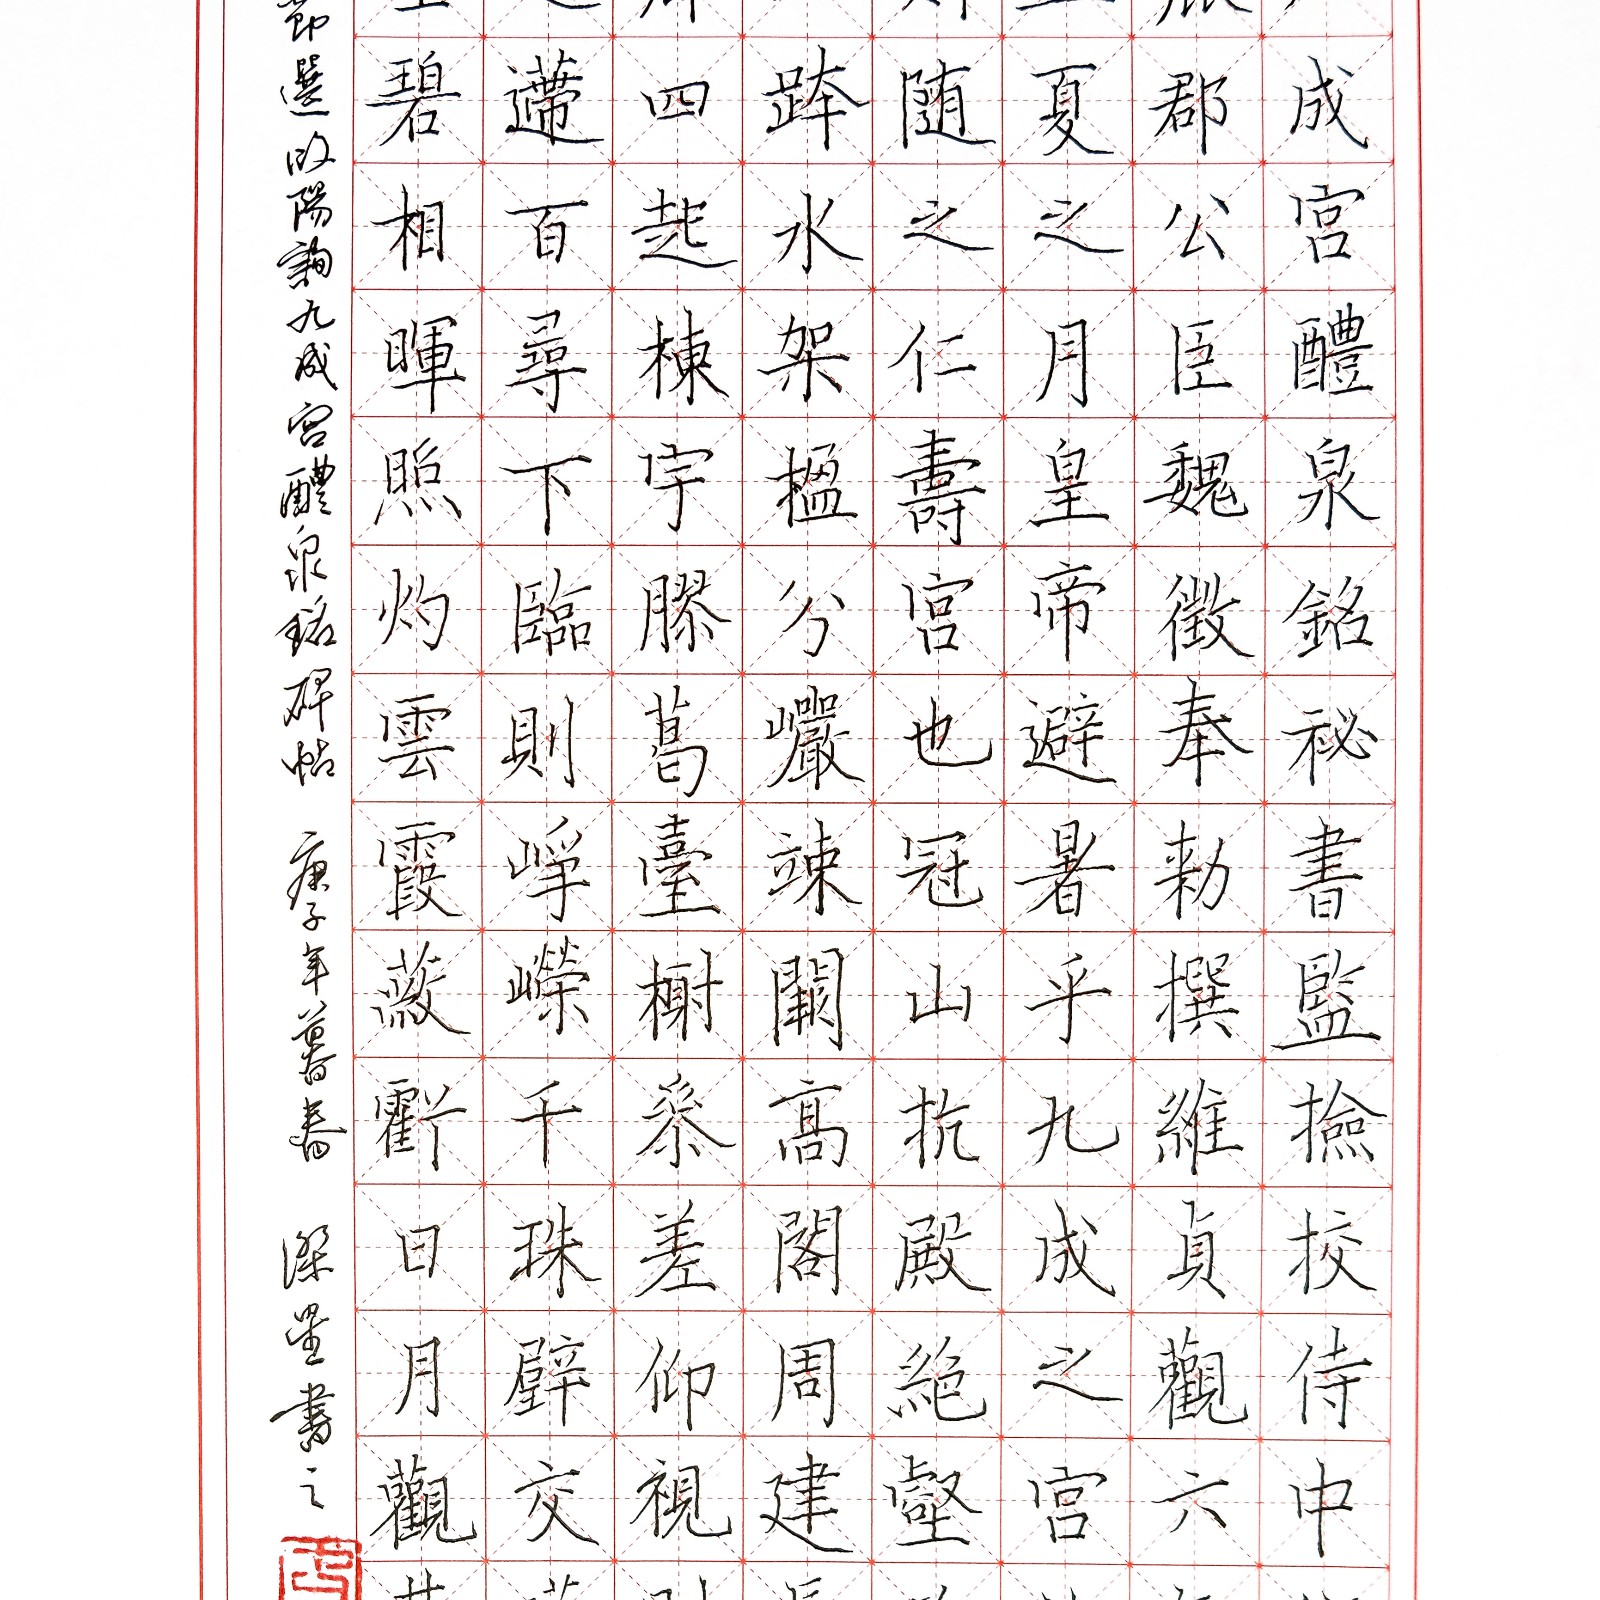 成宮醴泉銘祕書監撿挍侍中
郡公臣魏徵奉勑撰維貞觀六
夏之月皇帝避暑乎九成之宮
随之仁壽宮也冠山抗殿絕壑
跨水架楹分巖竦闕高閣周建
四起棟宇膠葛臺榭叅差仰視
遰百尋下臨則崢嶸千珠璧交
碧相暉照灼雲霞蔽虧日月觀
節選欧陽詢九成宮醴泉銘碑帖 庚子年暮春 書之